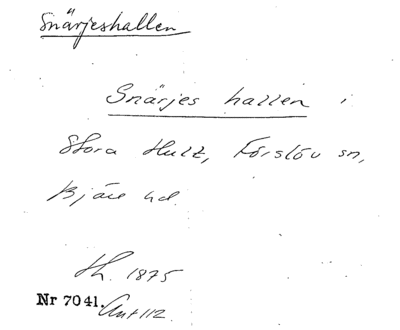 Snärjeshallen
Snärjes hallen i
Stora Hult, Förslöv sn,
Bjäre hd
Sk. 1875
Nr 7041. Ant 112